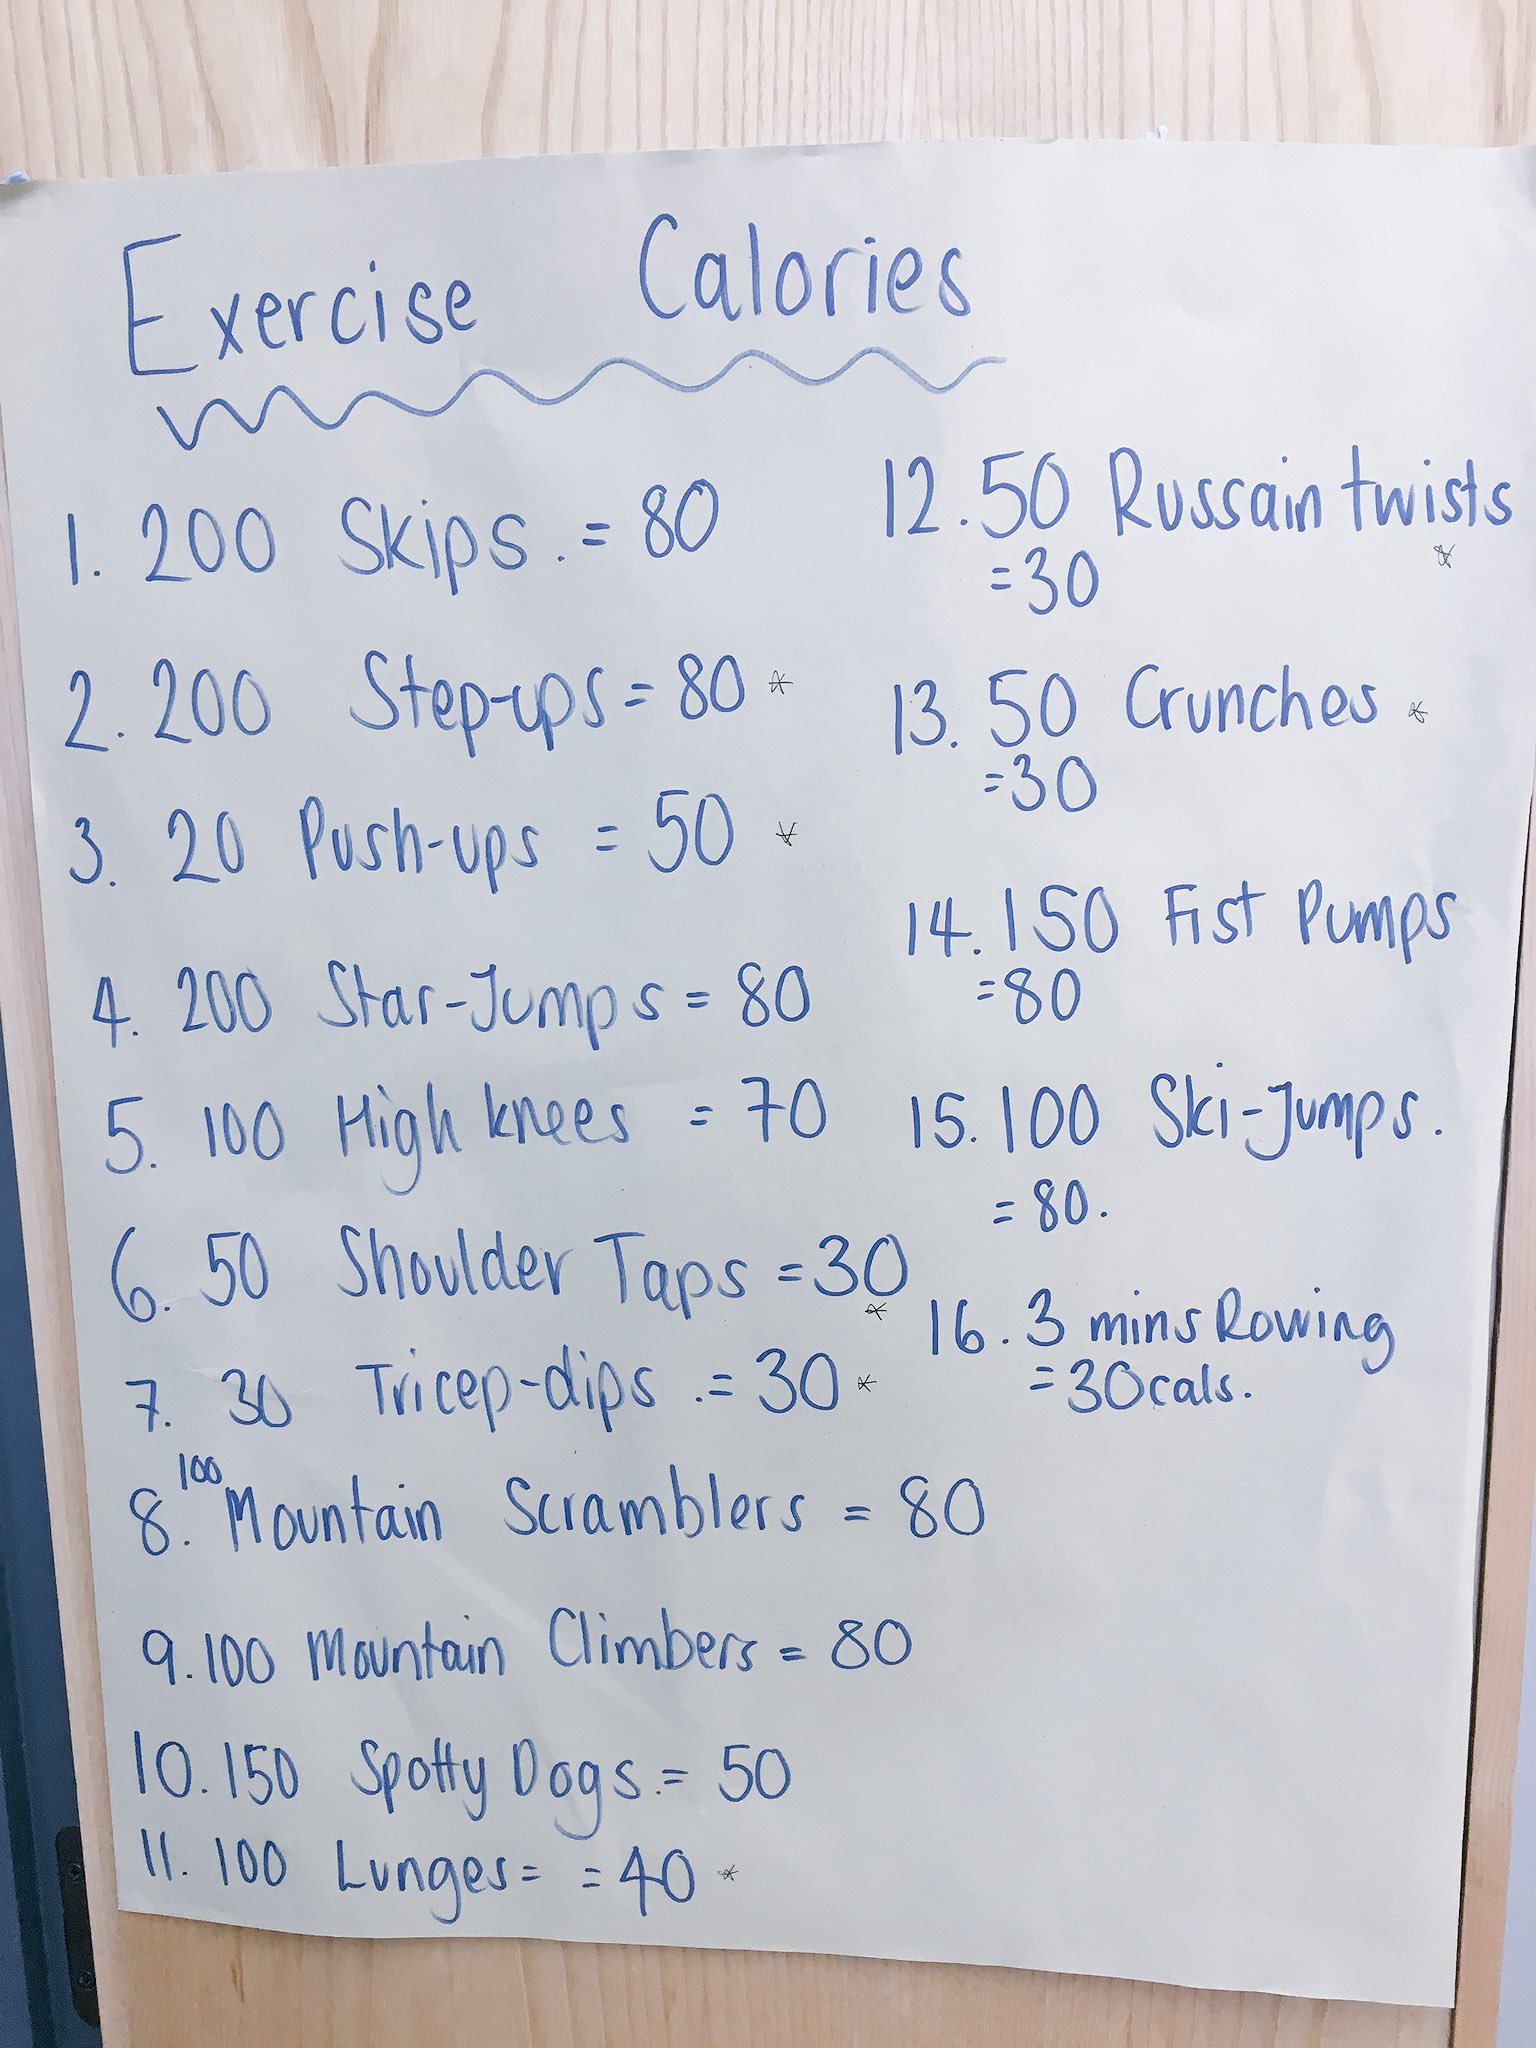 Exercise Calories
1. 200 Skips. = 80
2. 200 Step-ups = 80 *
3. 20 Push-ups = 50 *
4. 200 Star-Jumps = 80
5. 100 High knees = 70
6. 50 Shoulder Taps = 30
*
7. 30 Tricep-dips .= 30 *
100
8. Mountain Scramblers = 80
9. 100 Mountain Climbers = 80
10. 150 Spotty Dogs.= 50
11. 100 Lunges= = 40 *
12. 50 Russain twists
= 30 *
13. 50 Crunches *
= 30
14. 150 Fist Pumps
= 80
15. 100 Ski-Jumps.
= 80.
16. 3 mins Rowing
= 30cals.